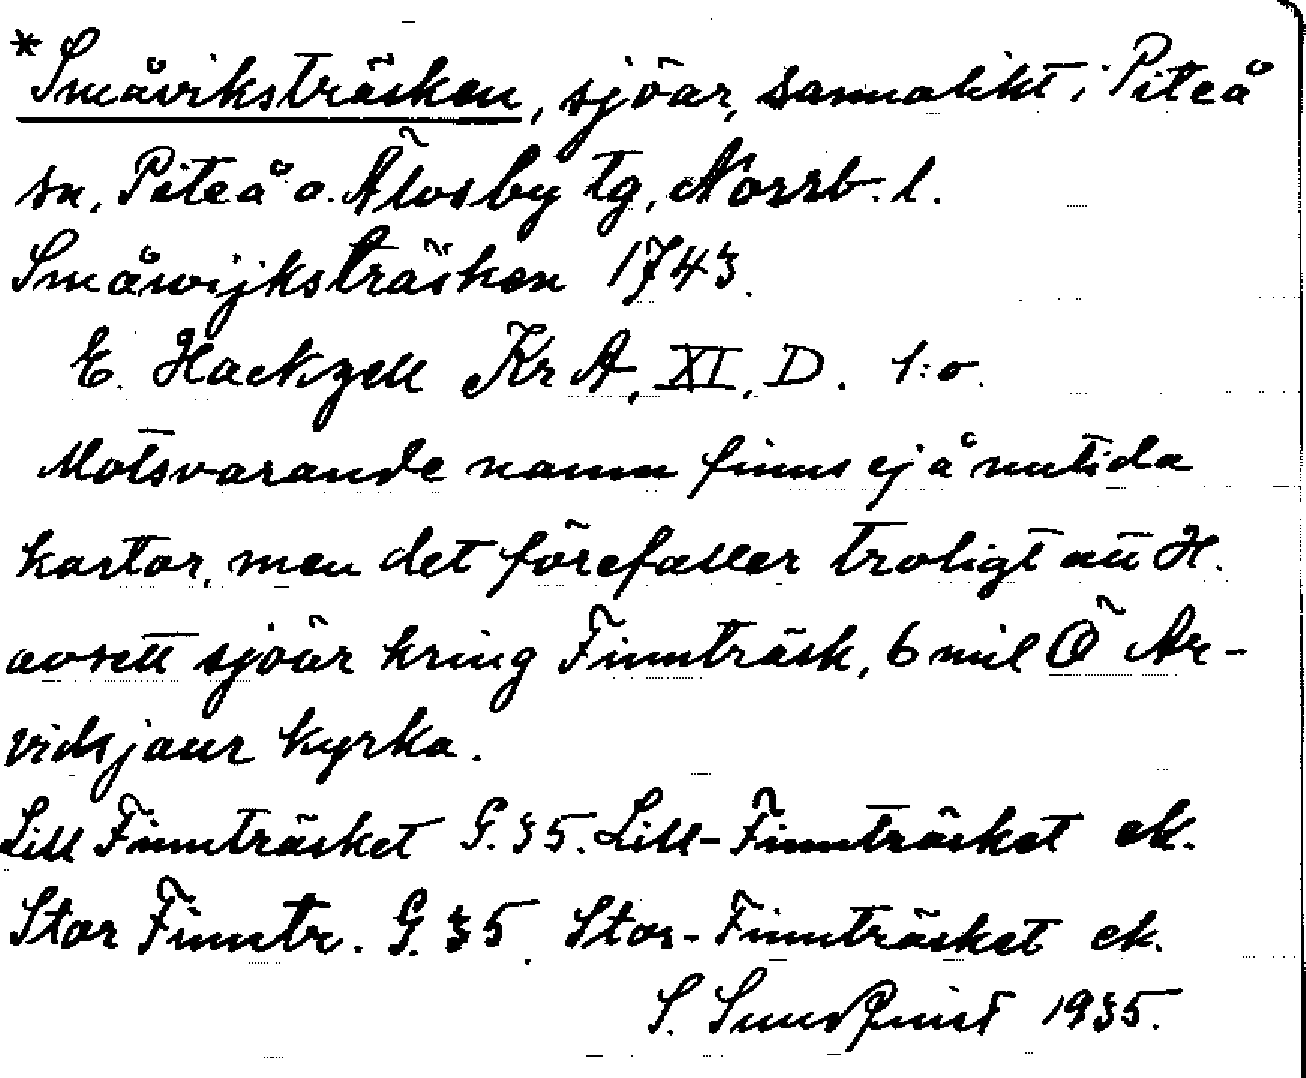 *Småviksträsken, sjöar, sannolikt i Piteå
sn, Piteå o. Älvsby tg, Norrb. l.
Småwijksträsken 1743.
E. Hackzell KrA, XI, D. 1:o.
Motsvarande namn finns ej å nutida
kartor, men det förefaller troligt att H.
avsett sjöar kring Finnträsk, 6 mil Ö Ar-
vidsjaur kyrka.
Lill Finnträsket G. 35. Lill-Finnträsket ek.
Stor Finntr. G. 35. Stor-Finnträsket ek.
S. Sundquist 1935.